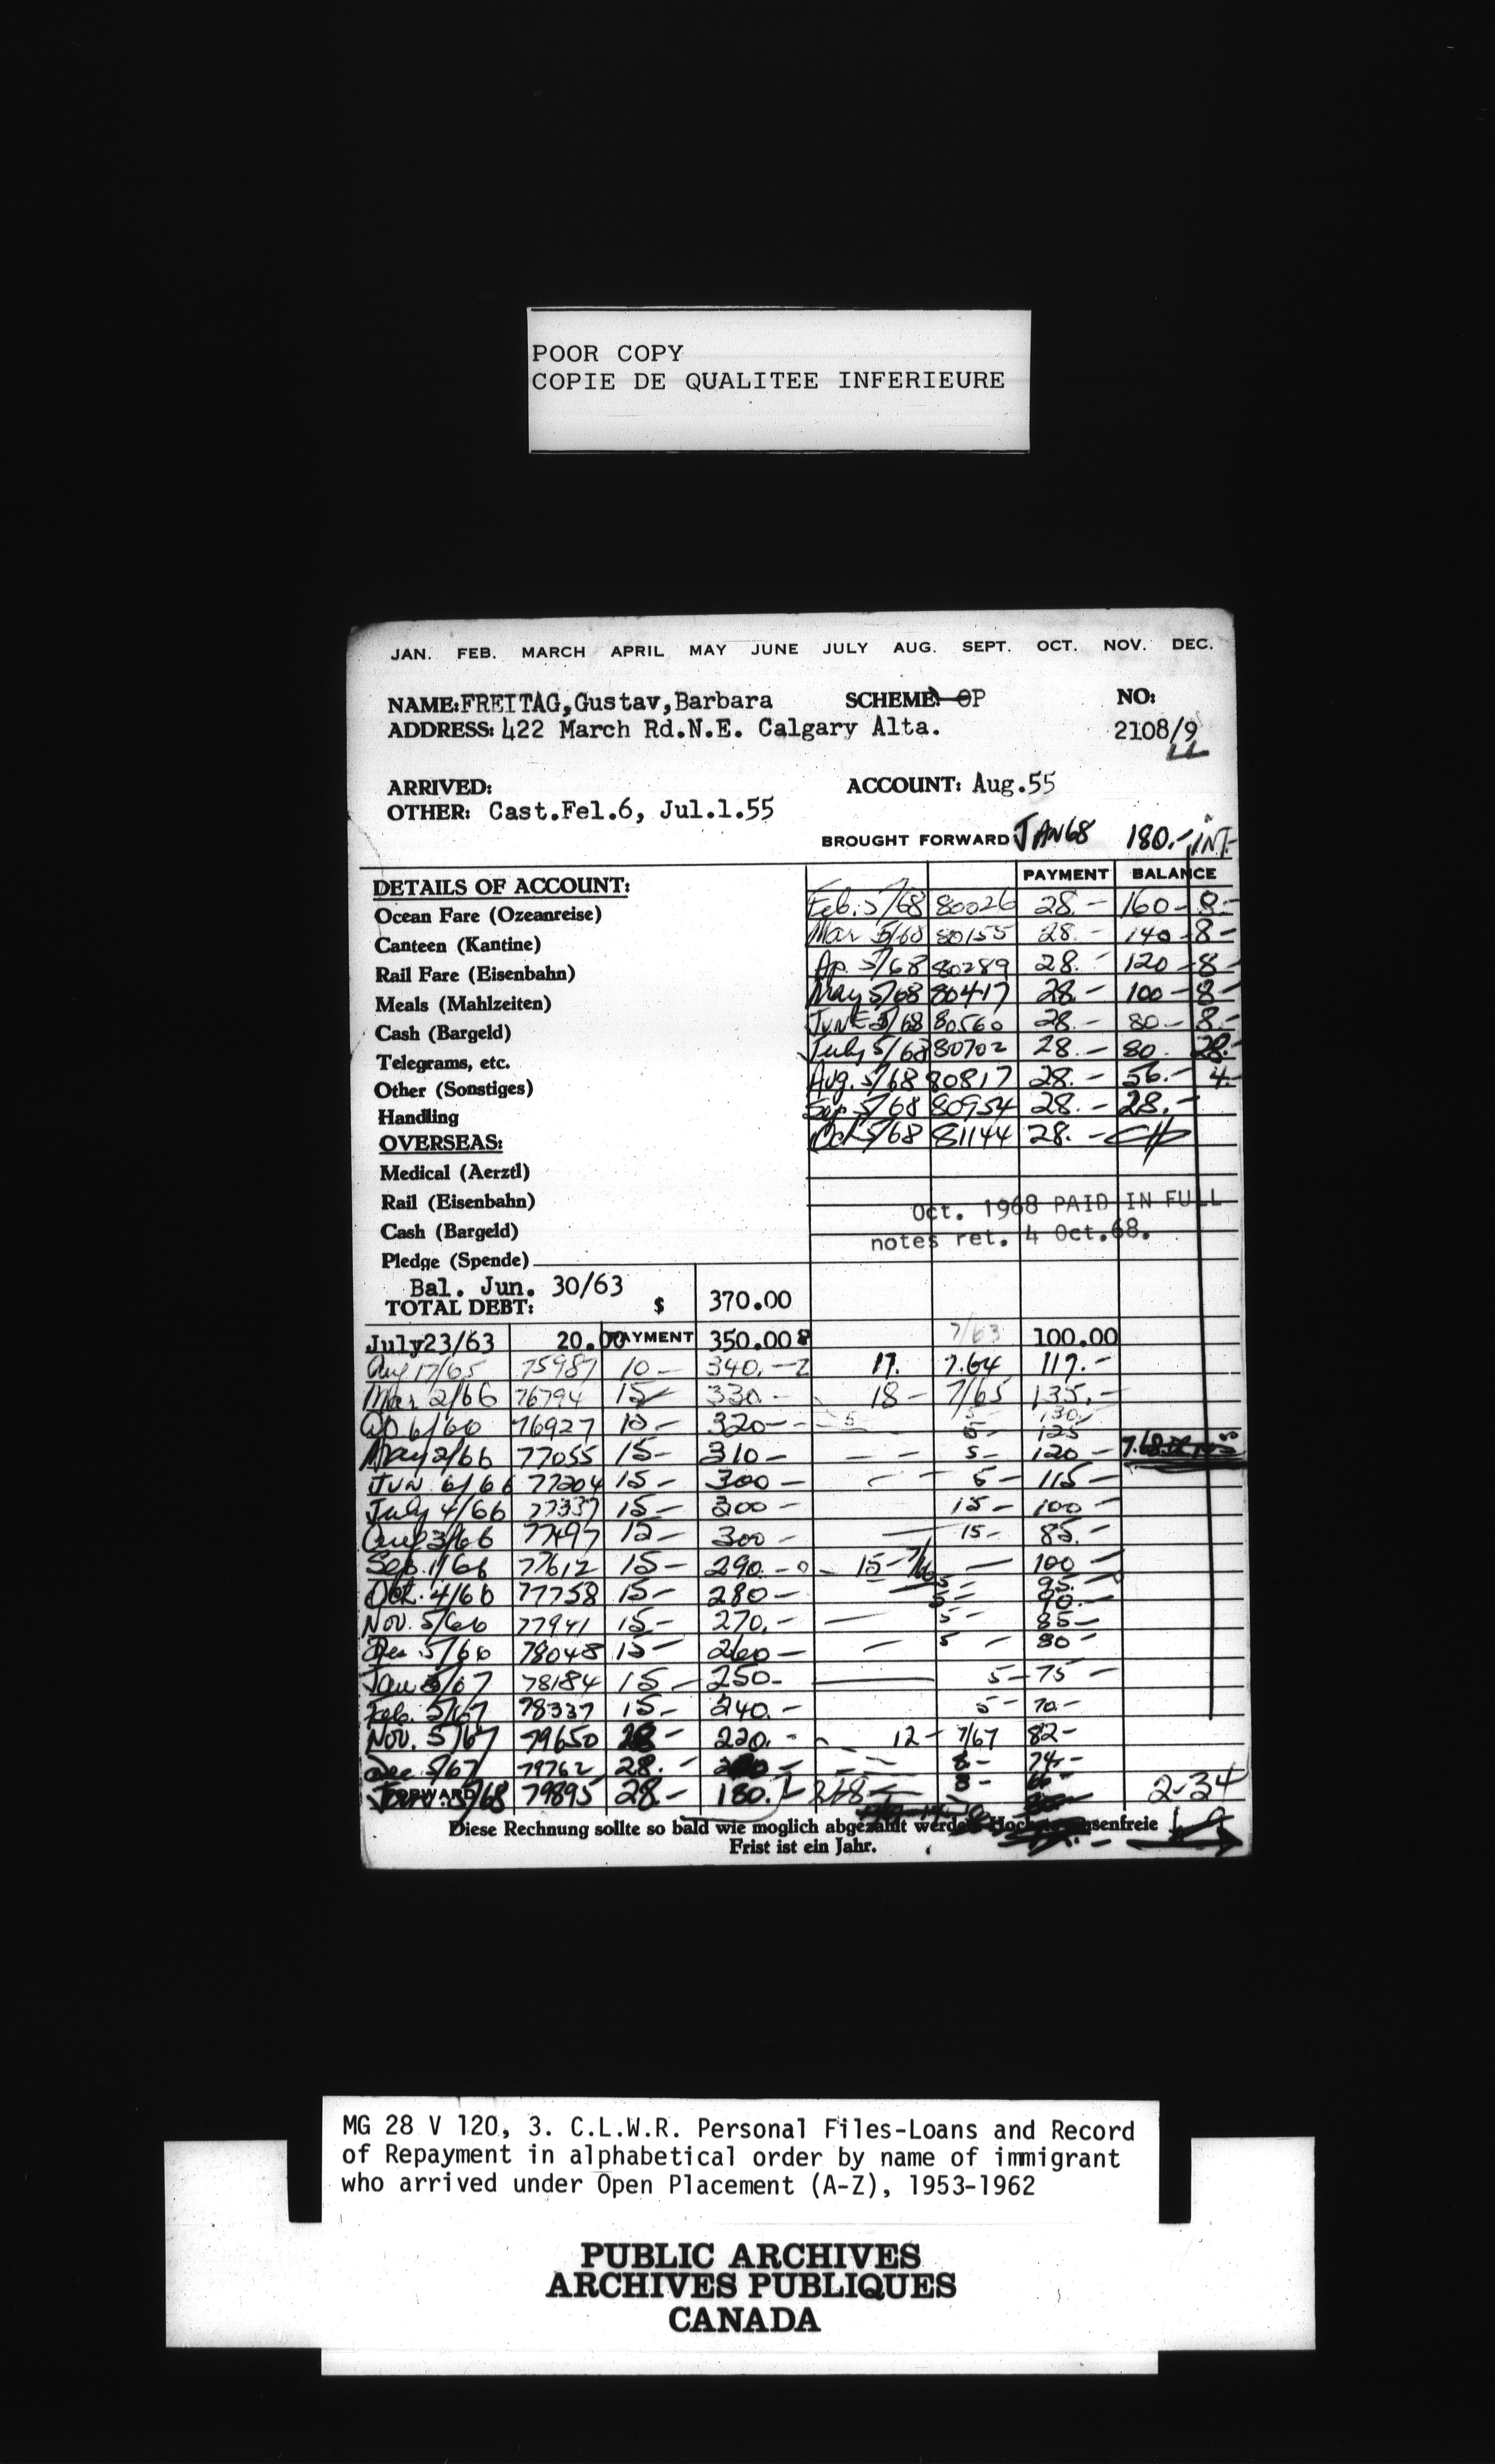 POOR COPY
COPIE DE QUALITEE INFERIEURE
JAN. FEB. MARCH APRIL MAY JUNE JULY AUG. SEPT. OCT. NOV. DEC.
NAME: FREITAG, Gustav, Barbara SCHEME: OP NO:
ADDRESS: 422 March Rd.N.E. Calgary Alta. 2108/9
ARRIVED: ACCOUNT: Aug.55
OTHER: Cast.Fel.6, Jul.1.55
BROUGHT FORWARD JAN 68 180.- INT-
PAYMENT BALANCE
DETAILS OF ACCOUNT:
Ocean Fare (Ozeanreise) Feb. 5/68 80026 28.- 160- 8-
Canteen (Kantine) Mar 5/68 80155 28.- 140- 8-
Rail Fare (Eisenbahn) Ap. 5/68 80289 28.- 120- 8-
Meals (Mahlzeiten) May 5/68 80417 28.- 100- 8-
Cash (Bargeld) JUNE 5/68 80560 28.- 80.- 8.-
Telegrams, etc. July 5/68 80702 28.- 80. 28.-
Other (Sonstiges) Aug. 5/68 80817 28.- 56.- 4-
Handling Sep. 5/68 80954 28.- 28.-
OVERSEAS: Oct 5/68 81144 28.-
Medical (Aerztl)
Rail (Eisenbahn) Oct. 1968 PAID IN FULL
Cash (Bargeld) notes ret. 4 Oct.68.
Pledge (Spende)
Bal. Jun. 30/63
TOTAL DEBT: $ 370.00
July23/63 20.00 PAYMENT 350.00 7/63 100.00
Aug 17/65 75987 10- 340.- 17. 7.64 117.-
Mar 2/66 76794 15- 330.- 18- 7/65 135.-
Ap 6/66 76927 15- 320- 5- 125
May 2/66 77055 15- 310- 5- 120-
JUN 6/66 77204 15- 300- 5- 115-
July 4/66 77337 15- 300- 15- 100-
Aug 3/66 77497 15- 300- 15- 85.-
Sep. 1/66 77612 15- 290.- 15- 7/66 100-
Oct. 4/66 77758 15- 280- 5- 90.-
Nov. 5/66 77941 15- 270.- 5- 85-
Dec 5/66 78048 15- 260- 5- 80-
Jan 5/67 78184 15- 250- 5- 75-
Feb. 5/67 78337 15- 240.- 5- 70.-
Nov. 5/67 79650 28- 220.- 12- 7/67 82-
Dec. 5/67 79762 28.- 8- 74-
FORWARD Jan. 5/68 79895 28- 180.- 8- 2-34
Diese Rechnung sollte so bald wie moglich abgezahlt werden
Frist ist ein Jahr.
MG 28 V 120, 3. C.L.W.R. Personal Files-Loans and Record
of Repayment in alphabetical order by name of immigrant
who arrived under Open Placement (A-Z), 1953-1962
PUBLIC ARCHIVES
ARCHIVES PUBLIQUES
CANADA